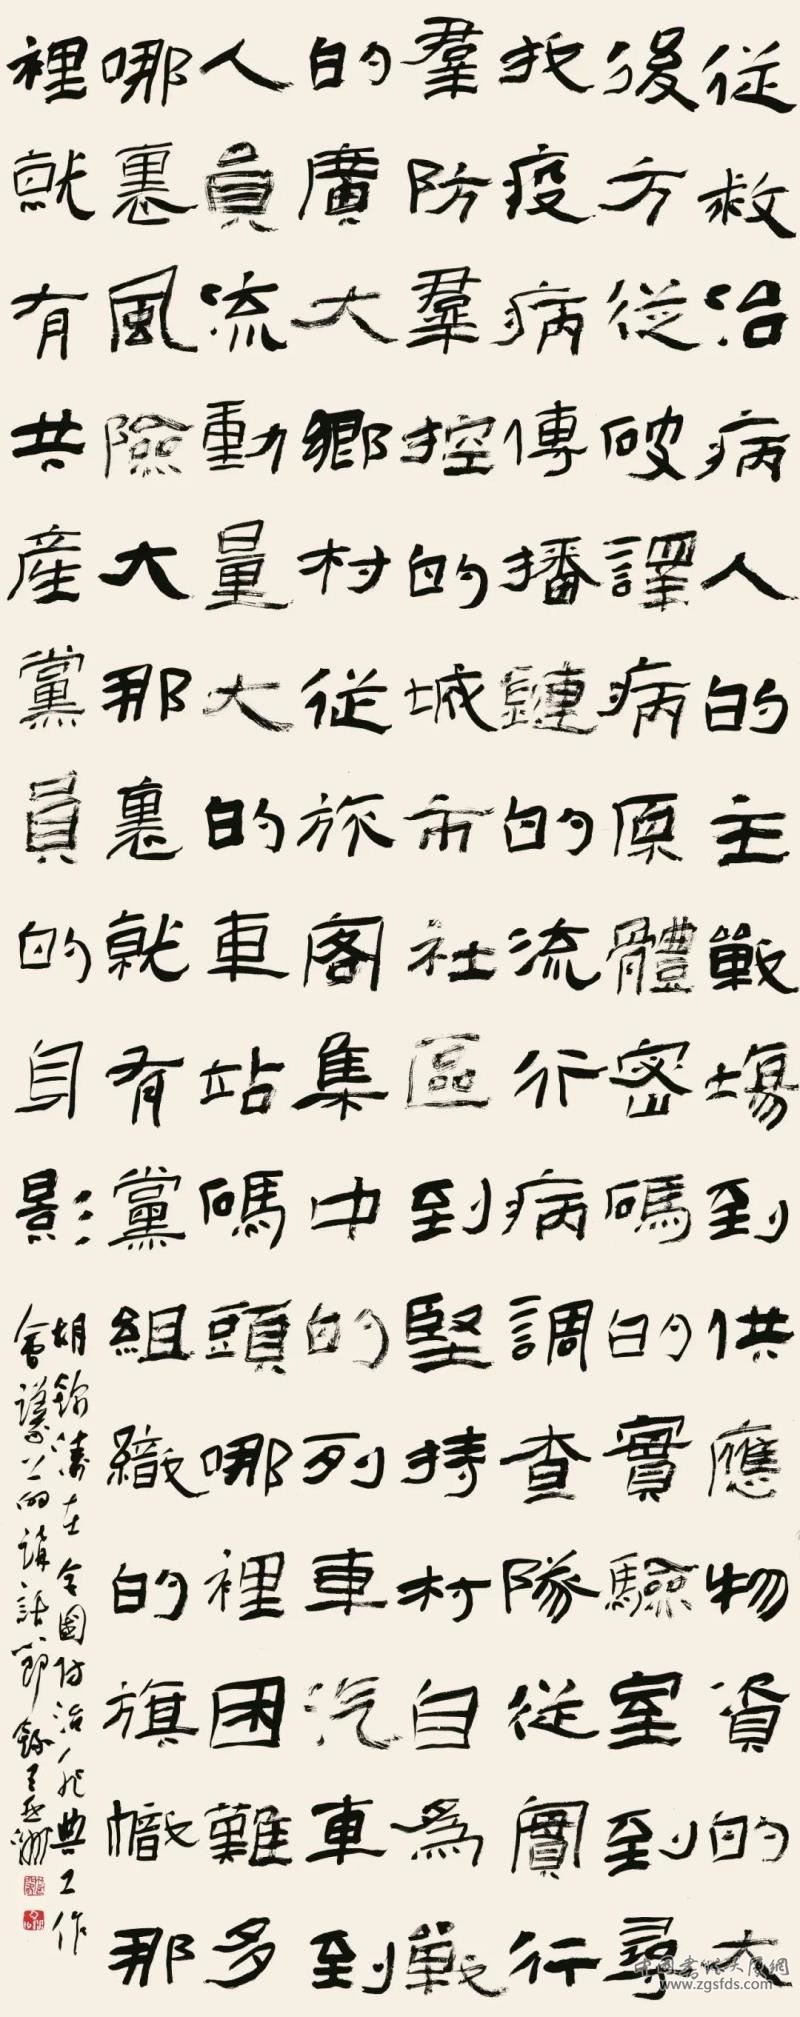 從救治病人的主戰場到供應物資的大
後方從破譯病原體密碼的實驗室到尋
找疫病傳播鏈的流行病調查隊從實行
羣防羣控的城市社區到堅持村自為戰
的廣大鄉村從旅客集中的列車汽車到
人員流動量大的車站碼頭哪裡困難多
哪裏風險大那裏就有黨組織的旗幟那
裡就有共產黨員的身影
胡錦濤在全國防治非典工作
會議上的講話節錄王亞洲
中国書法大展網
www.zgsfds.com